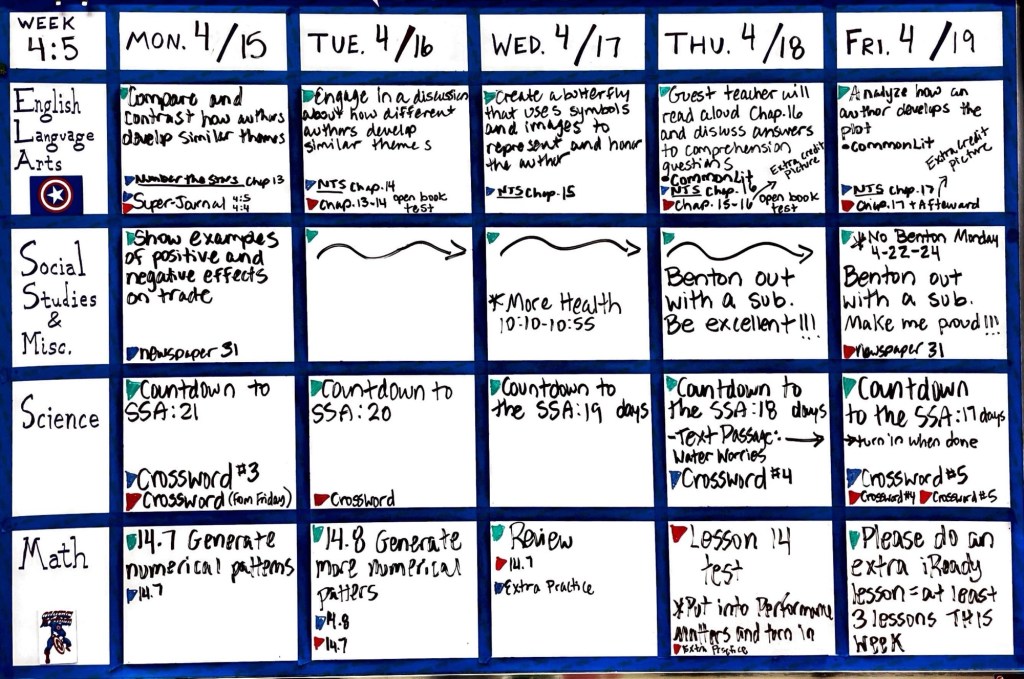 WEEK
4:5
MON. 4/15
TUE. 4/16
WED. 4/17
THU. 4/18
FRI. 4/19
English
Language
Arts
Compare and
contrast how authors
develop similar themes
Number the Stars Chap 13
Super-Journal 4:5
4:4
Engage in a discussion
about how different
authors develop
similar themes
NTS Chap. 14
Chap. 13-14 open book
test
Create a butterfly
that uses symbols
and images to
represent and honor
the author
NTS Chap. 15
Guest teacher will
read aloud Chap. 16
and disuss answers
to comprehension
questions
Extra credit
picture
•CommonLit
NTS Chap. 16
Chap. 15-16 open book
test
Analyze how an
author develops the
plot
•CommonLit
Extra credit
picture
NTS Chap. 17
Chap. 17 + Afterward
Social
Studies
&
Misc.
Show examples
of positive and
negative effects
on trade
newspaper 31
*More Health
10:10-10:55
Benton out
with a sub.
Be excellent!!!
*No Benton Monday
4-22-24
Benton out
with a sub.
Make me proud!!!
newspaper 31
Science
Countdown to
SSA: 21
Crossword #3
Crossword (from Friday)
Countdown to
SSA: 20
Crossword
Countdown to
the SSA: 19 days
Countdown to
the SSA: 18 days
-Text Passage:
Water Worries
Crossword #4
Countdown
to the SSA: 17 days
turn in when done
Crossword #5
Crossword #4 Crossword #5
Math
14.7 Generate
numerical patterns
14.7
14.8 Generate
more numerical
patters
14.8
14.7
Review
14.7
Extra Practice
Lesson 14
test
*Put into Performance
Matters and turn in
Extra Practice
Please do an
extra iReady
lesson = at least
3 lessons THIS
WEEK